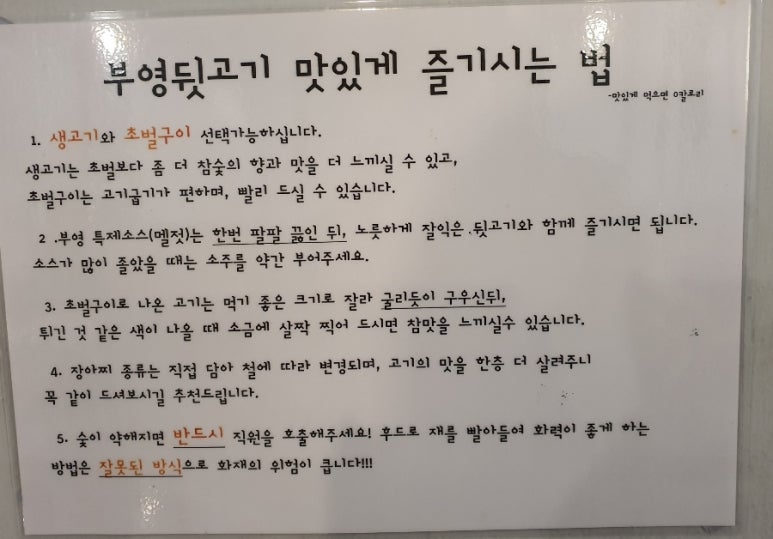 부영뒷고기 맛있게 즐기시는 법
-맛있게 먹으면 0칼로리
1. 생고기와 초벌구이 선택가능하십니다.
생고기는 초벌보다 좀 더 참숯의 향과 맛을 더 느끼실 수 있고,
초벌구이는 고기굽기가 편하며, 빨리 드실 수 있습니다.
2 .부영 특제소스(멜젓)는 한번 팔팔 끓인 뒤, 노릇하게 잘익은 .뒷고기와 함께 즐기시면 됩니다.
소스가 많이 졸았을 때는 소주를 약간 부어주세요.
3. 초벌구이로 나온 고기는 먹기 좋은 크기로 잘라 굴리듯이 구우신뒤,
튀긴 것 같은 색이 나올 때 소금에 살짝 찍어 드시면 참맛을 느끼실수 있습니다.
4. 장아찌 종류는 직접 담아 철에 따라 변경되며, 고기의 맛을 한층 더 살려주니
꼭 같이 드셔보시길 추천드립니다.
5. 숯이 약해지면 반드시 직원을 호출해주세요! 후드로 재를 빨아들여 화력이 좋게 하는
방법은 잘못된 방식으로 화재의 위험이 큽니다!!!